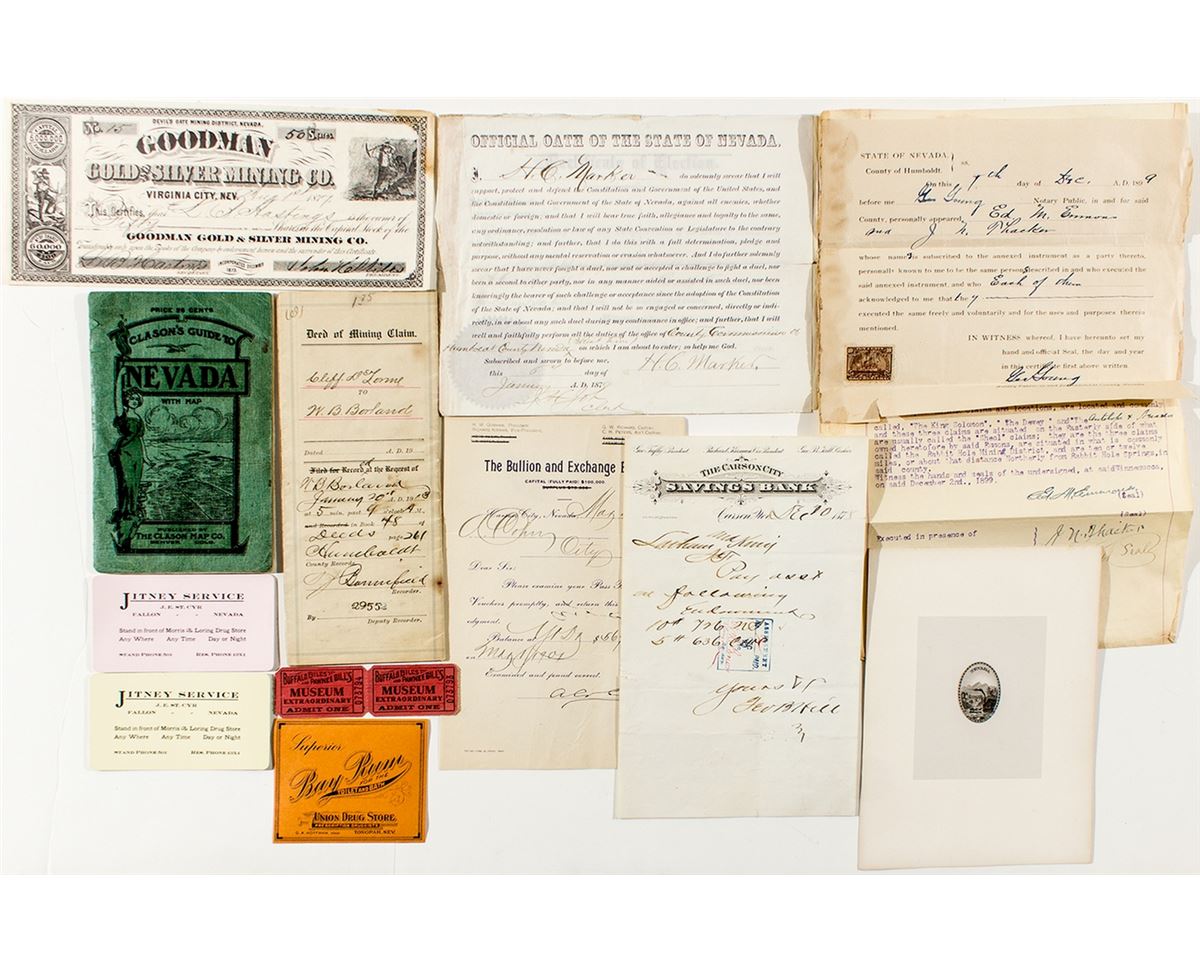 DEVIL'S GATE MINING DISTRICT, NEVADA.
No. 15
50 Shares
GOODMAN
GOLD & SILVER MINING CO.
VIRGINIA CITY, NEV.
This Certifies, that L. S. Hastings is the owner of
Shares in the Capital Stock of the
GOODMAN GOLD & SILVER MINING CO.
Transferable only upon the Books of the Company by endorsement hereon and the surrender of this Certificate.
INCORPORATED DECEMBER 1873
PRESIDENT
OFFICIAL OATH OF THE STATE OF NEVADA.
I, H. C. Marker do solemnly swear that I will
support, protect and defend the Constitution and Government of the United States, and
the Constitution and Government of the State of Nevada, against all enemies, whether
domestic or foreign; and that I will bear true faith, allegiance and loyalty to the same,
any ordinance, resolution or law of any State Convention or Legislature to the contrary
notwithstanding; and further, that I do this with a full determination, pledge and
purpose, without any mental reservation or evasion whatsoever. And I do further solemnly
swear that I have never fought a duel, nor sent or accepted a challenge to fight a duel, nor
been a second to either party, nor in any manner aided or assisted in such duel, nor been
knowingly the bearer of such challenge or acceptance since the adoption of the Constitution
of the State of Nevada; and that I will not be so engaged or concerned, directly or indi-
rectly, in or about any such duel during my continuance in office; and further, that I will
well and faithfully perform all the duties of the office of County Commissioner of
Humboldt County Nevada on which I am about to enter; so help me God.
Subscribed and sworn to before me,
H. C. Marker.
this
January A. D. 1879
Clerk
STATE OF NEVADA, } ss.
County of Humboldt.
On this 7th day of Dec. A. D. 1899
before me Geo Young Notary Public, in and for said
County, personally appeared Ed M. Emmons
and J. N. Thacker
whose names subscribed to the annexed instrument as a party thereto,
personally known to me to be the same persons described in and who executed the
said annexed instrument, and who Each of them
acknowledged to me that they
executed the same freely and voluntarily and for the uses and purposes therein
mentioned.
IN WITNESS whereof, I have hereunto set my
hand and official Seal, the day and year
in this certificate first above written.
Geo Young
called, "The King Solomon", "The Dewey" and "The Antelope
and these three claims are situated on the Easterly side of what
are usually called the "Sheol" claims; they are the same claims
owned heretofore by said Parsons, and situated in what is commonly
called the Rabbit Hole Mining District, and are ten or twelve
miles, or about that distance Northerly from Rabbit Hole Springs, in
said county.
Witness the hands and seals of the undersigned, at said Winnemucca,
on said December 2nd., 1899.
Ed M Emmons (Seal)
(Seal)
Executed in presence of
J. N. Thacker
Seal
PRICE 25 CENTS
CLASON'S GUIDE TO
NEVADA
WITH MAP
PUBLISHED BY
THE CLASON MAP CO.
DENVER, COLO.
Deed of Mining Claim.
TO
W. B. Borland
Dated A. D. 19
Filed for Record at the Request of
W. B. Borland
January 20th A. D. 1908
at 5 min. past 9 o'clock A M.
and Recorded in Book 48 of
Deeds page 261
Humboldt
County Records.
Recorder.
By 29552
Deputy Recorder.
H. W. GORHAM, President
RICHARD KIRMAN, Vice-President.
G. W. RICHARD, Cashier
C. H. PETERS, Ass't Cashier.
The Bullion and Exchange B
CAPITAL (FULLY PAID) $100,000.
SURPLUS $70,000
Carson City, Nevada, May
City
Dear Sir:
Please examine your Pass
Vouchers promptly, and return this
edgment.
Balance as
on May 1, 1905
Examined and found correct.
THE CARSON CITY
SAVINGS BANK
Carson, Nev. Dec 20 1878
Pay asst
on following
10 # 726
5 # 636
Yours &c
Geo B Hill
JITNEY SERVICE
J. E. ST. CYR
FALLON - - NEVADA
Stand in front of Morris & Loring Drug Store
Any Where Any Time Day or Night
STAND PHONE 501 RES. PHONE 1251
JITNEY SERVICE
J. E. ST. CYR
FALLON - - NEVADA
Stand in front of Morris & Loring Drug Store
Any Where Any Time Day or Night
STAND PHONE 501 RES. PHONE 1251
BUFFALO BILL'S
AND PAWNEE BILL'S
MUSEUM
EXTRAORDINARY
ADMIT ONE
073794
BUFFALO BILL'S
AND PAWNEE BILL'S
MUSEUM
EXTRAORDINARY
ADMIT ONE
073793
Superior
Bay Rum
FOR THE
TOILET AND BATH
UNION DRUG STORE,
PRESCRIPTION DRUGGISTS
TONOPAH, NEV.
NEVADA